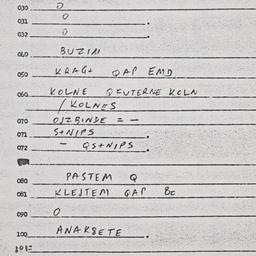 030. 0
031. 0
032. 0
040. BUZIM
050 KRAGt QAP EMD
060. KOLNE QEUTERNE KOLN
/ KOLNES
070 OJZBINDE = -
071 S+NIPS
072 - QS+NIPS
080 PASTEM Q
081 KLEJTEM GAP BE
090 0
100 ANAKSETE